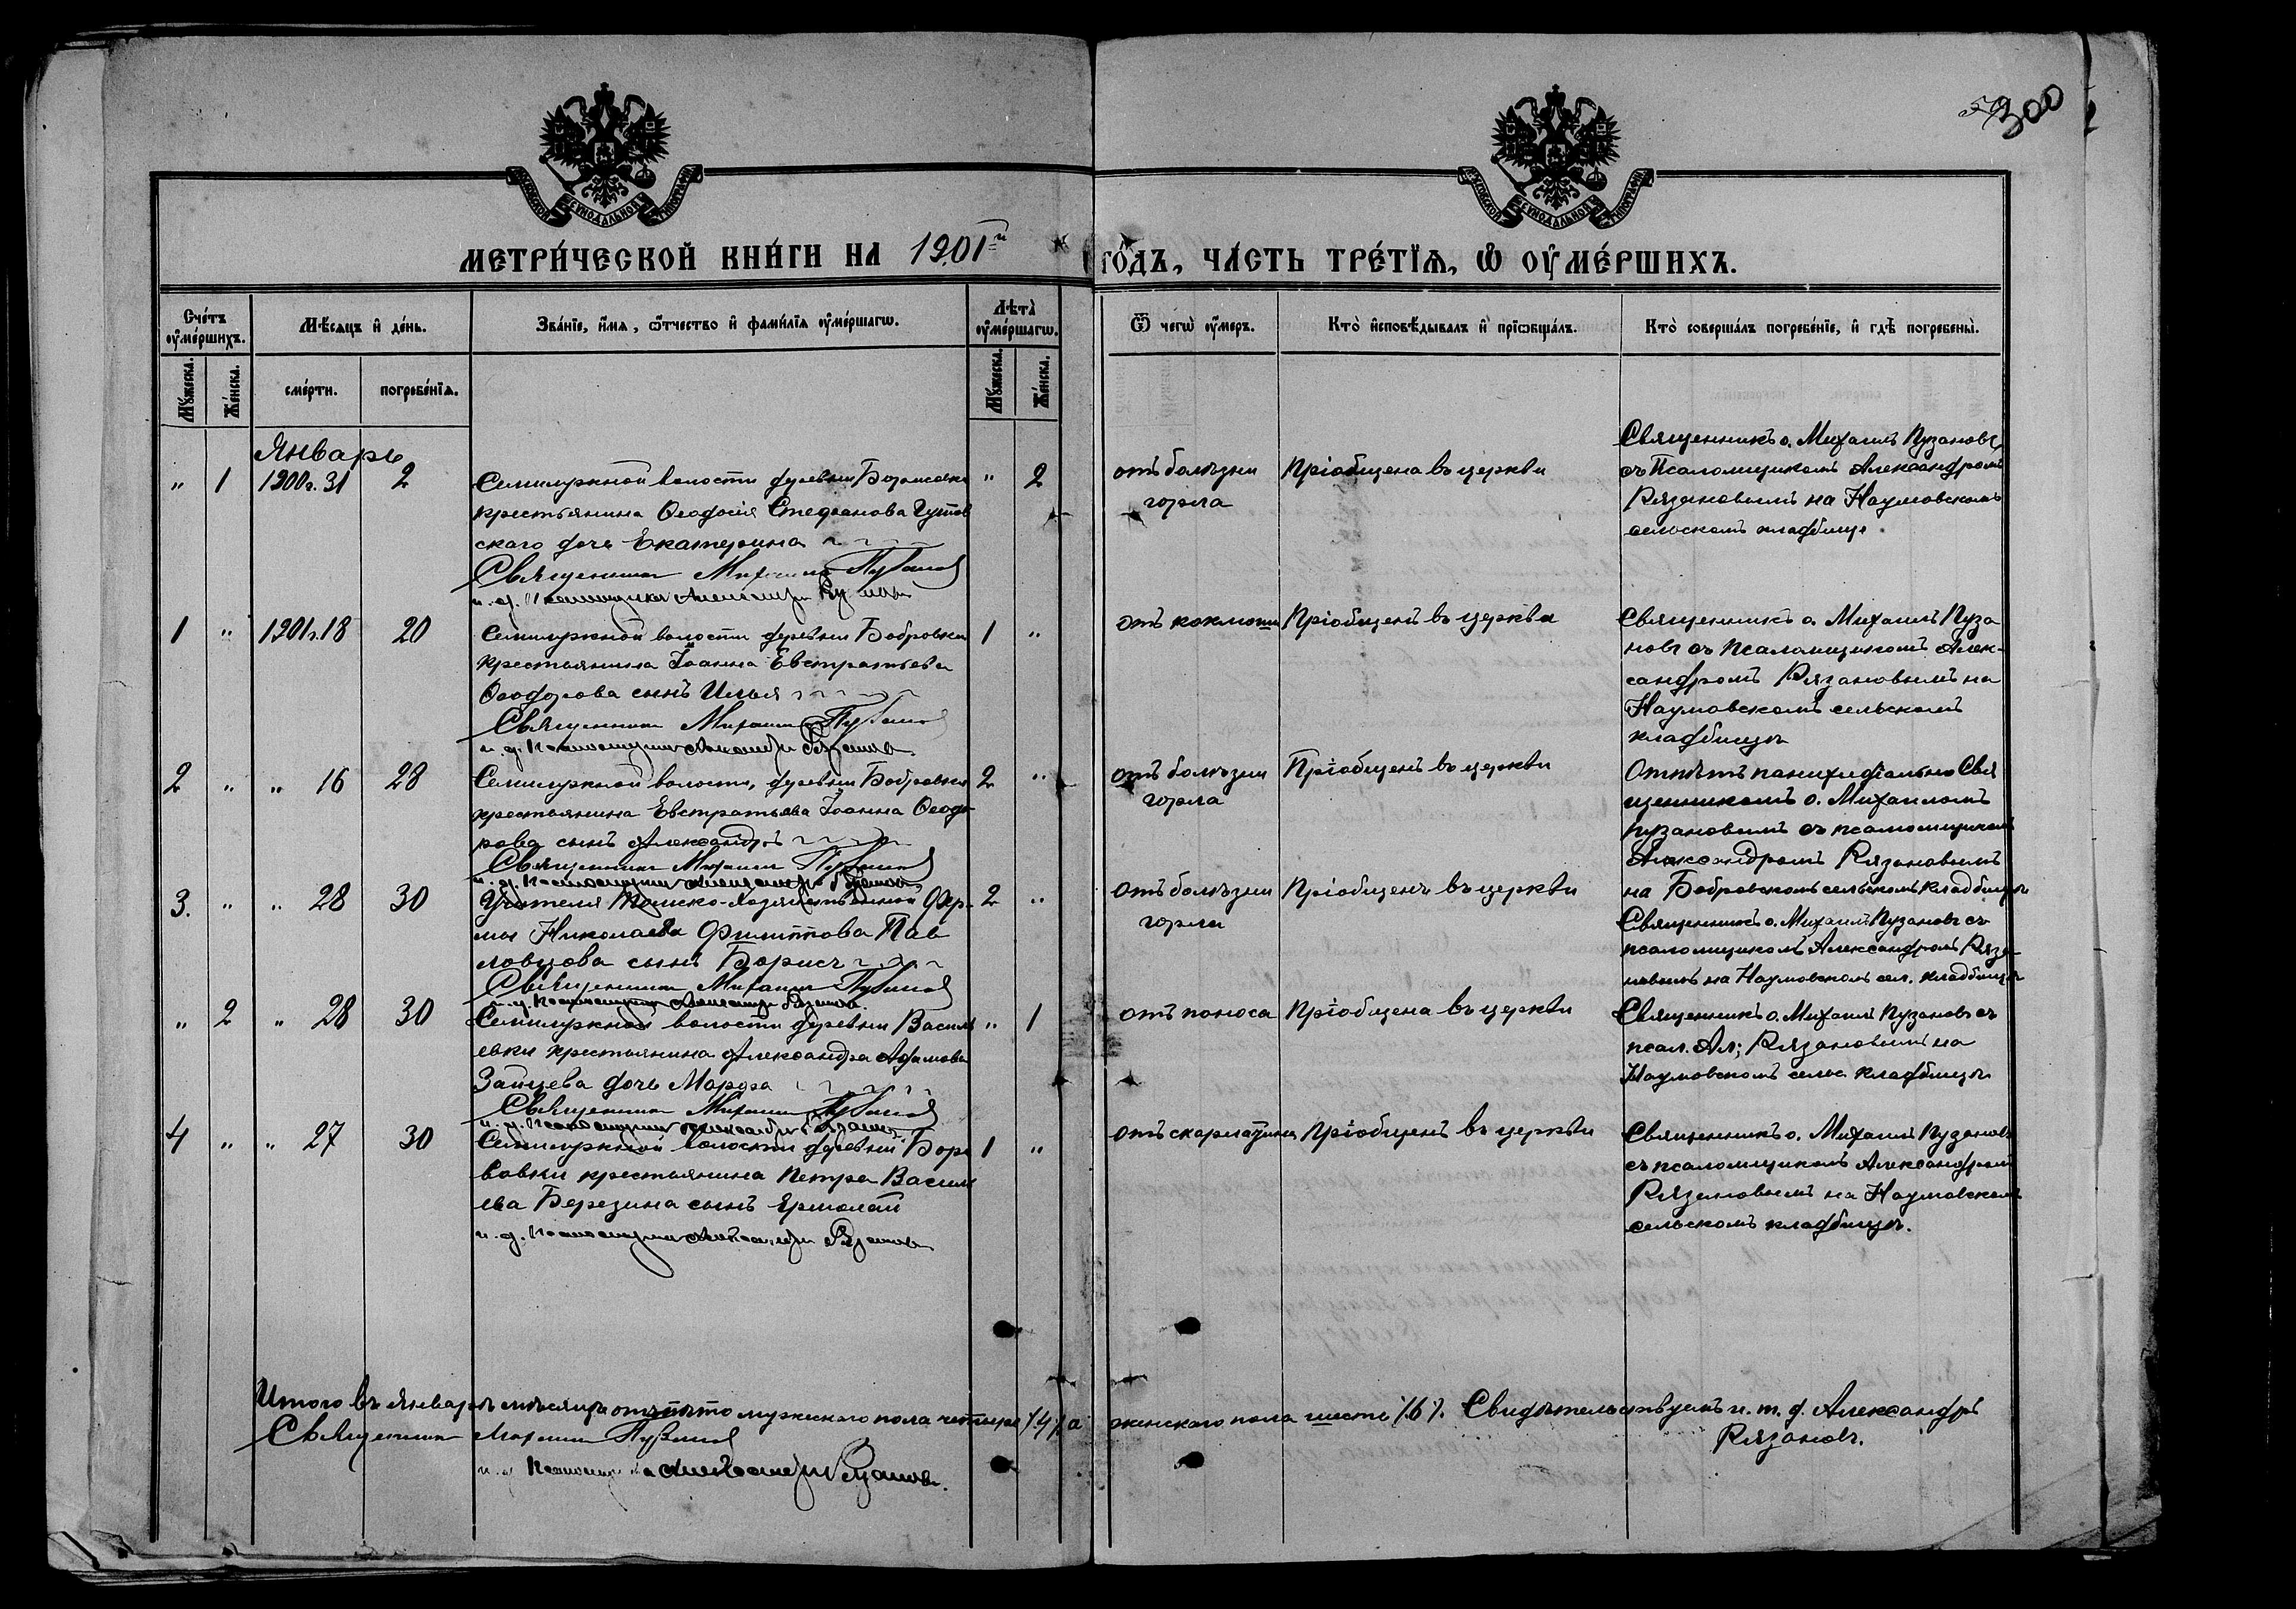 300
МЕТРИ́ЧЕСКОЙ КНИ́ГИ НА 1901й ГО́ДЪ, ЧА́СТЬ ТРЕ́ТЇѦ, Ѡ ОУМЕ́РШИХЪ.
Сче́тъ оуме́ршихъ.
Мѣ́сяцъ и де́нь.
Зва́нїе, и́мя, ѿтчество и фами́лїя оуме́ршагѡ.
Лѣта̀ оуме́ршагѡ.
Ѿ чегѡ̀ оу́меръ.
Кто̀ исповѣ́дывалъ и прїѡбща́лъ.
Кто̀ соверша́лъ погребе́нїе, и гдѣ̀ погребены̀.
Мꙋ́жеска.
Же́нска.
сме́рти.
погребе́нїя.
Мꙋ́жеска.
Же́нска.
Январь
" 1 1900г. 31 2
Семилужной волости деревни
крестьянина Ѳеодосія Стефанова Густов
скаго дочь Екатерина
Священникъ Михаилъ Пузановъ
и. д. Псаломщика Александръ Рязановъ
" 2
отъ болѣзни
горла
Пріобщена въ церкви
Священникъ о. Михаилъ Пузановъ
съ Псаломщикомъ Александромъ
Рязановымъ на Наумовскомъ
сельскомъ кладбище.
1 " 1901г. 18 20
Семилужной волости деревни Бобровки
крестьянина Іоанна Евстратьева
Ѳеодорова сынъ Илья
Священникъ Михаилъ Пузановъ
и. д. Псаломщика Александръ Рязановъ
1 "
отъ коклюша
Пріобщенъ въ церкви
Священникъ о. Михаилъ Пуза
новъ съ псаломщикомъ Алек-
сандромъ Рязановымъ на
Наумовскомъ сельскомъ
кладбищѣ
2 " " 16 28
Семилужной волости, деревни Бобровки
крестьянина Евстратьева Іоанна Ѳеодо
рова сынъ Александръ
Священникъ Михаилъ Пузановъ
и. д. Псаломщика Александръ Рязановъ
2 "
отъ болѣзни
горла
Пріобщенъ въ церкви
Отпѣтъ панихидіально Свя
щенникомъ о. Михаиломъ
Пузановымъ съ псаломщикомъ
Александромъ Рязановымъ
на Бобровскомъ сельскомъ кладбищѣ
3. " " 28 30
Учителя Томско-Хозяйственной Фер-
мы Николая Филиппова Пав
ловцова сынъ Борисъ
Священникъ Михаилъ Пузановъ
и. д. Псаломщика Александръ Рязановъ
2 "
отъ болѣзни
горла
Пріобщенъ въ церкви
Священникъ о. Михаилъ Пузановъ съ
псаломщикомъ Александромъ Ряза-
новымъ на Наумовскомъ сел. кладбищѣ
" 2 " 28 30
Семилужной волости деревни Василь
евки крестьянина Александра Адамова
Зайцева дочь Марфа
Священникъ Михаилъ Пузановъ
и. д. Псаломщика Александръ Рязановъ
" 1
отъ поноса
Пріобщена въ церкви
Священникъ о. Михаилъ Пузановъ съ
псал. Ал; Рязановымъ на
Наумовскомъ сельс кладбищѣ
4 " " 27 30
Семилужной волости деревни
крестьянина Петра Василь
ева Березина сынъ Ермолай
и. д. Псаломщика Александръ Рязановъ
1 "
отъ скарлатины
Пріобщенъ въ церкви
Священникъ о. Михаилъ Пузановъ
съ псаломщикомъ Александромъ
Рязановымъ на Наумовскомъ
сельскомъ кладбищѣ.
Итого въ январѣ мѣсяцѣ отпѣто мужескаго пола четыре /4/, а женскаго пола шесть /6/. Свидѣтельствуемъ и. т. д. Александръ
Рязановъ.
Священникъ Михаилъ Пузановъ
и. д. Псаломщика Александръ Рязановъ.